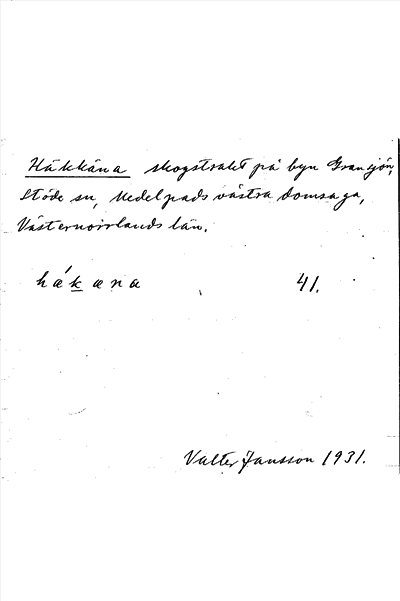 Häkkäna skogstrakt på byn Gransjön,
Stöde sn, Medelpads västra domsaga,
Västernorrlands län.
hǽkæna 41.
Valter Jansson 1931.